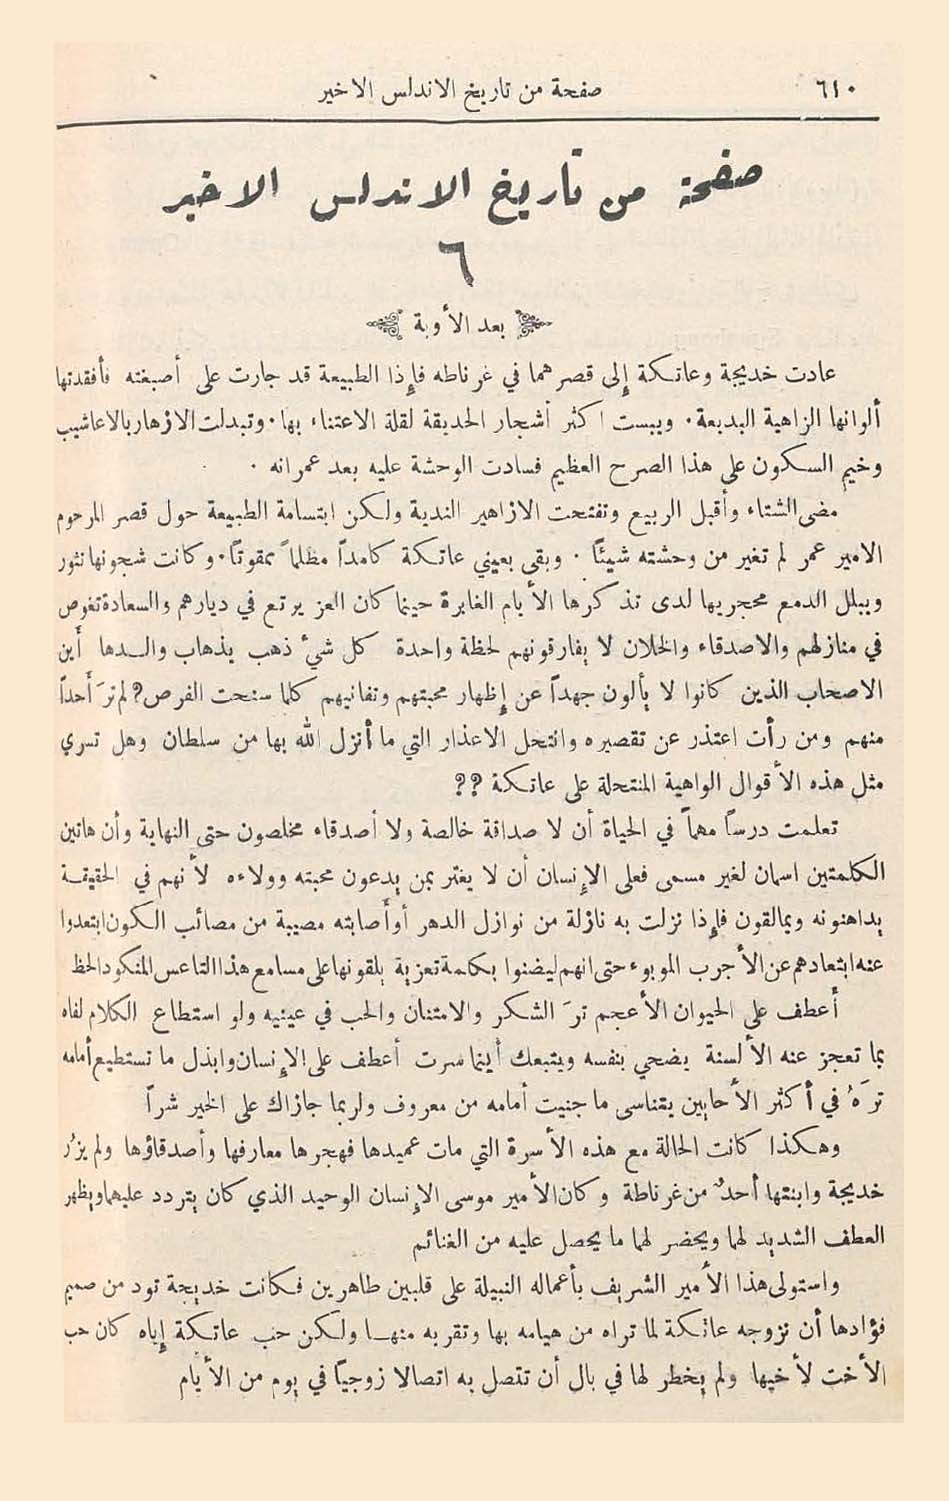 ٦١٠
صفحة من تاريخ الاندلس الاخير
صفحة من تاريخ الاندلس الاخير
٦
بعد الأوبة
عادت خديجة وعاتكة إلى قصرهما في غرناطه فإذا الطبيعة قد جارت على أصبغته فأفقدتها
ألوانها الزاهية البديعة. ويبست اكثر أشجار الحديقة لقلة الاعتناء بها. وتبدلت الازهار بالاعاشيب
وخيم السكون على هذا الصرح العظيم فسادت الوحشة عليه بعد عمرانه.
مضى الشتاء وأقبل الربيع وتفتحت الازاهير الندية ولكن ابتسامة الطبيعة حول قصر المرحوم
الامير عمر لم تغير من وحشته شيئًا. وبقى بعيني عاتكة كامداً مظلماً ممقوتًا. وكانت شجونها تثور
ويبلل الدمع محجريها لدى تذكرها الأيام الغابرة حينما كان العز يرتع في ديارهم والسعادة تغوص
في منازلهم والاصدقاء والخلان لا يفارقونهم لحظة واحدة كل شيء ذهب بذهاب والدها أين
الاصحاب الذين كانوا لا يألون جهداً عن إظهار محبتهم وتفانيهم كلما سنحت الفرص؟ لم ترَ أحداً
منهم ومن رأت اعتذر عن تقصيره وانتحل الاعذار التي ما أنزل الله بها من سلطان وهل تسري
مثل هذه الأقوال الواهية المنتحلة على عاتكة؟؟
تعلمت درساً مهماً في الحياة أن لا صداقة خالصة ولا أصدقاء مخلصون حتى النهاية وأن هاتين
الكلمتين اسمان لغير مسمى فعلى الإنسان أن لا يغتر بمن يدعون محبته وولاءه لأنهم في الحقيقة
يداهنونه ويمالقون فإذا نزلت به نازلة من نوازل الدهر أو أصابته مصيبة من مصائب الكون ابتعدوا
عنه ابتعادهم عن الأجرب الموبوء حتى انهم ليضنوا بكلمة تعزية يلقونها على مسامع هذا التاعس المنكود الحظ
أعطف على الحيوان الأعجم ترَ الشكر والامتنان والحب في عينيه ولو استطاع الكلام لفاه
بما تعجز عنه الألسنة يضحي بنفسه ويتبعك أينما سرت أعطف على الإنسان وابذل ما تستطيع أمامه
ترَهُ في أكثر الأحايين يتناسى ما جنيت أمامه من معروف ولربما جازاك على الخير شراً
وهكذا كانت الحالة مع هذه الأسرة التي مات عميدها فهجرها معارفها وأصدقاؤها ولم يزُر
خديجة وابنتها أحدٌ من غرناطة وكان الأمير موسى الإنسان الوحيد الذي كان يتردد عليهما ويظهر
العطف الشديد لهما ويحضر لهما ما يحصل عليه من الغنائم
واستولى هذا الأمير الشريف بأعماله النبيلة على قلبين طاهرين فكانت خديجة تود من صميم
فؤادها أن تزوجه عاتكة لما تراه من هيامه بها وتقربه منها ولكن حب عاتكة إياه كان حب
الأخت لأخيها ولم يخطر لها في بال أن تتصل به اتصالا زوجيًا في يوم من الأيام